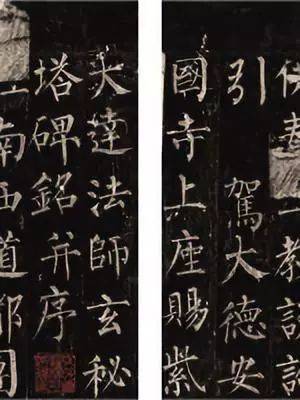 供奉教談
引駕大德安
國寺上座賜紫
大達法師玄秘
塔碑銘并序
南西道都團